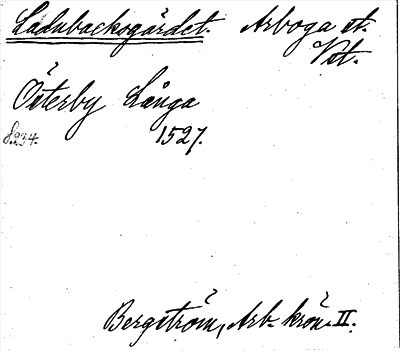 Ladubacksgärdet. Arboga st.
Vstm.
Österby Långa
s.234. 1527.
Bergström, Arb. krön. II.